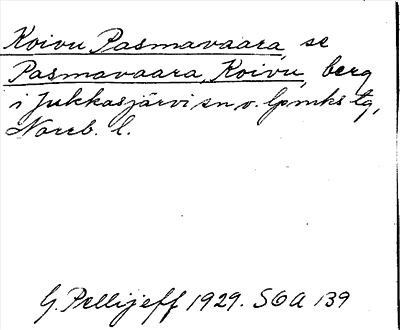 Koivu Pasmavaara, se
Pasmavaara, Koivu, berg
i Jukkasjärvi sn v. lpmks tg,
Norrb. l.
G. Pellijeff 1929. SOA 139